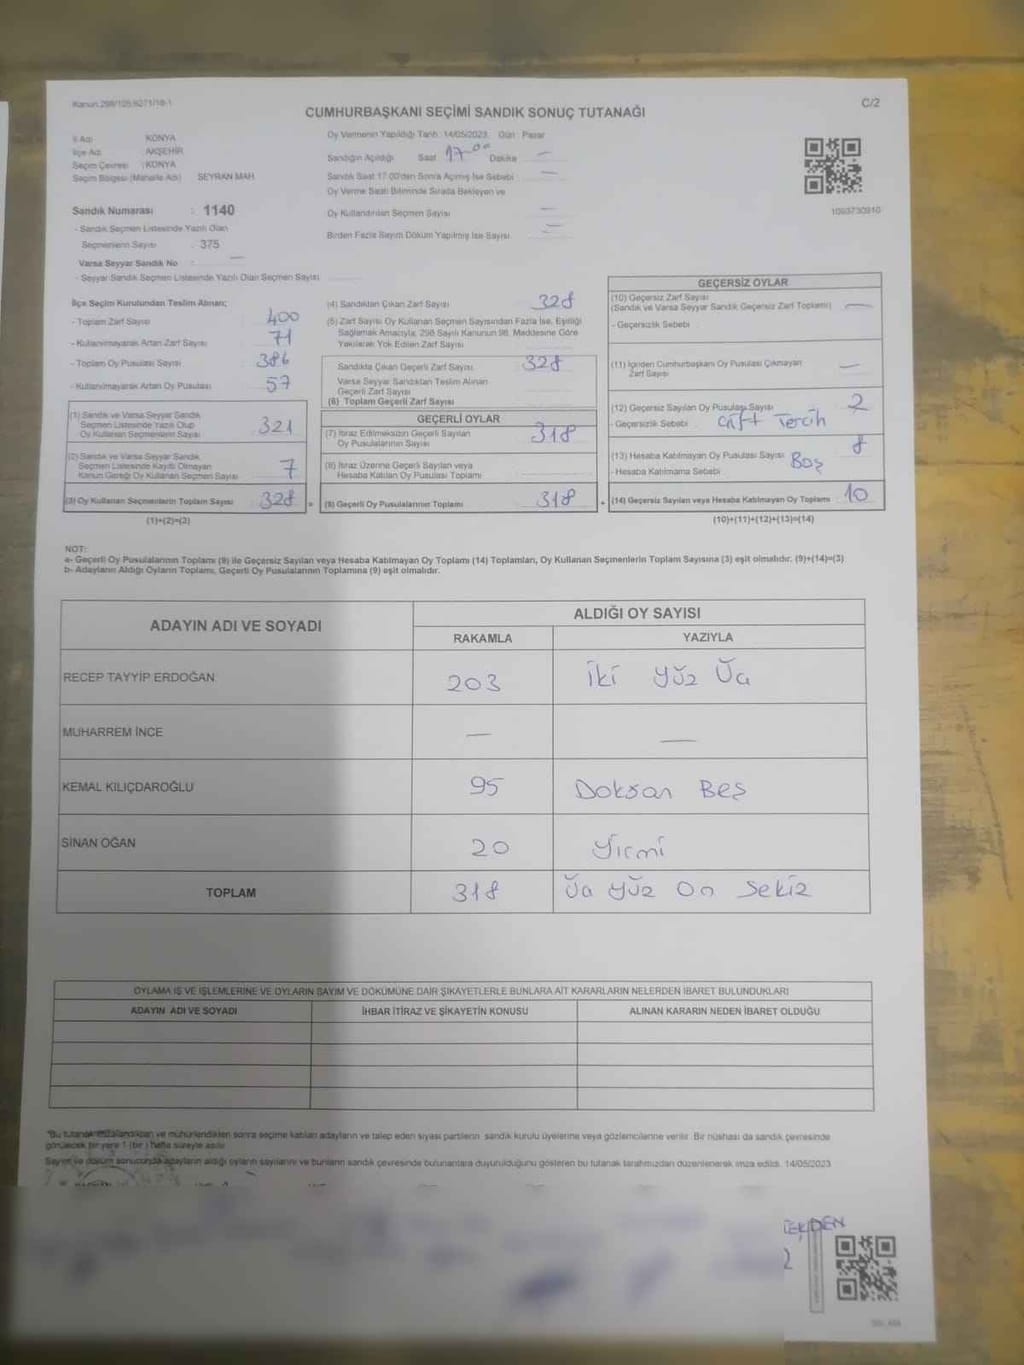 Kanun:298/105,6271/18-1
C/2
CUMHURBAŞKANI SEÇİMİ SANDIK SONUÇ TUTANAĞI
İl Adı KONYA
İlçe Adı AKŞEHİR
Seçim Çevresi : KONYA
Seçim Bölgesi (Mahalle Adı) SEYRAN MAH
Sandık Numarası : 1140
- Sandık Seçmen Listesinde Yazılı Olan
Seçmenlerin Sayısı 375
Varsa Seyyar Sandık No —
- Seyyar Sandık Seçmen Listesinde Yazılı Olan Seçmen Sayısı
Oy Vermenin Yapıldığı Tarih: 14/05/2023 Gün : Pazar
Sandığın Açıldığı Saat 17.00 Dakika —
Sandık Saat 17.00'den Sonra Açılmış İse Sebebi —
Oy Verme Saati Bitiminde Sırada Bekleyen ve
Oy Kullandırılan Seçmen Sayısı —
Birden Fazla Sayım Döküm Yapılmış İse Sayısı —
1093730910
İlçe Seçim Kurulundan Teslim Alınan;
- Toplam Zarf Sayısı 400
- Kullanılmayarak Artan Zarf Sayısı 71
- Toplam Oy Pusulası Sayısı 386
- Kullanılmayarak Artan Oy Pusulası 57
(1) Sandık ve Varsa Seyyar Sandık
Seçmen Listesinde Yazılı Olup
Oy Kullanan Seçmenlerin Sayısı 321
(2) Sandık ve Varsa Seyyar Sandık
Seçmen Listesinde Kayıtlı Olmayan
Kanun Gereği Oy Kullanan Seçmen Sayısı 7
(3) Oy Kullanan Seçmenlerin Toplam Sayısı 328 =
(1)+(2)=(3)
(4) Sandıktan Çıkan Zarf Sayısı 328
(5) Zarf Sayısı Oy Kullanan Seçmen Sayısından Fazla İse, Eşitliği
Sağlamak Amacıyla, 298 Sayılı Kanunun 98. Maddesine Göre
Yakılarak Yok Edilen Zarf Sayısı
Sandıkta Çıkan Geçerli Zarf Sayısı 328
Varsa Seyyar Sandıktan Teslim Alınan
Geçerli Zarf Sayısı
(6) Toplam Geçerli Zarf Sayısı
GEÇERLİ OYLAR
(7) İtiraz Edilmeksizin Geçerli Sayılan
Oy Pusulalarının Sayısı 318
(8) İtiraz Üzerine Geçerli Sayılan veya
Hesaba Katılan Oy Pusulası Toplamı
(9) Geçerli Oy Pusulalarının Toplamı 318 +
GEÇERSİZ OYLAR
(10) Geçersiz Zarf Sayısı
(Sandık ve Varsa Seyyar Sandık Geçersiz Zarf Toplamı) —
- Geçersizlik Sebebi
(11) İçinden Cumhurbaşkanı Oy Pusulası Çıkmayan
Zarf Sayısı —
(12) Geçersiz Sayılan Oy Pusulası Sayısı 2
- Geçersizlik Sebebi Çift Tercih
(13) Hesaba Katılmayan Oy Pusulası Sayısı 8
- Hesaba Katılmama Sebebi Boş
(14) Geçersiz Sayılan veya Hesaba Katılmayan Oy Toplamı 10
(10)+(11)+(12)+(13)=(14)
NOT:
a- Geçerli Oy Pusulalarının Toplamı (9) ile Geçersiz Sayılan veya Hesaba Katılmayan Oy Toplamı (14) Toplamları, Oy Kullanan Seçmenlerin Toplam Sayısına (3) eşit olmalıdır. (9)+(14)=(3)
b- Adayların Aldığı Oyların Toplamı, Geçerli Oy Pusulalarının Toplamına (9) eşit olmalıdır.
ADAYIN ADI VE SOYADI
ALDIĞI OY SAYISI
RAKAMLA YAZIYLA
RECEP TAYYİP ERDOĞAN 203 İki Yüz Üç
MUHARREM İNCE — —
KEMAL KILIÇDAROĞLU 95 Doksan Beş
SİNAN OĞAN 20 Yirmi
TOPLAM 318 Üç Yüz On Sekiz
OYLAMA İŞ VE İŞLEMLERİNE VE OYLARIN SAYIM VE DÖKÜMÜNE DAİR ŞİKAYETLERLE BUNLARA AİT KARARLARIN NELERDEN İBARET BULUNDUKLARI
ADAYIN ADI VE SOYADI İHBAR İTİRAZ VE ŞİKAYETİN KONUSU ALINAN KARARIN NEDEN İBARET OLDUĞU
*Bu tutanak imzalandıktan ve mühürlendikten sonra seçime katılan adayların ve talep eden siyasi partilerin sandık kurulu üyelerine veya gözlemcilerine verilir. Bir nüshası da sandık çevresinde
görülecek bir yere 1 (bir) hafta süreyle asılır.
Sayım ve döküm sonucunda adayların aldığı oyların sayılarını ve bunların sandık çevresinde bulunanlara duyurulduğunu gösteren bu tutanak tarafımızdan düzenlenerek imza edildi. 14/05/2023